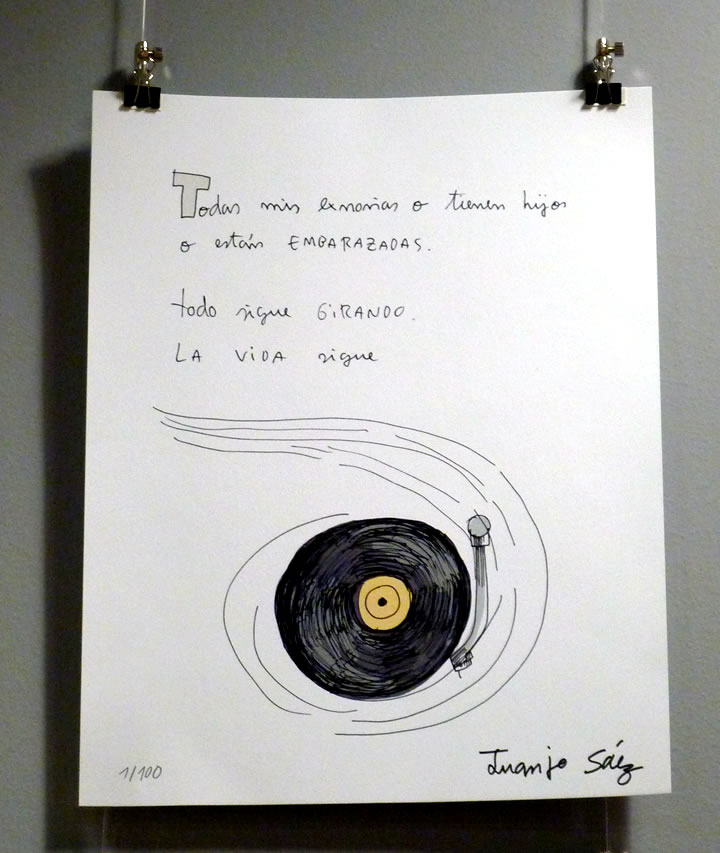 Todas mis exnovias o tienen hijos
o están EMBARAZADAS.
todo sigue GiRANDO.
LA ViDA sigue
1/100
Juanjo Sáez